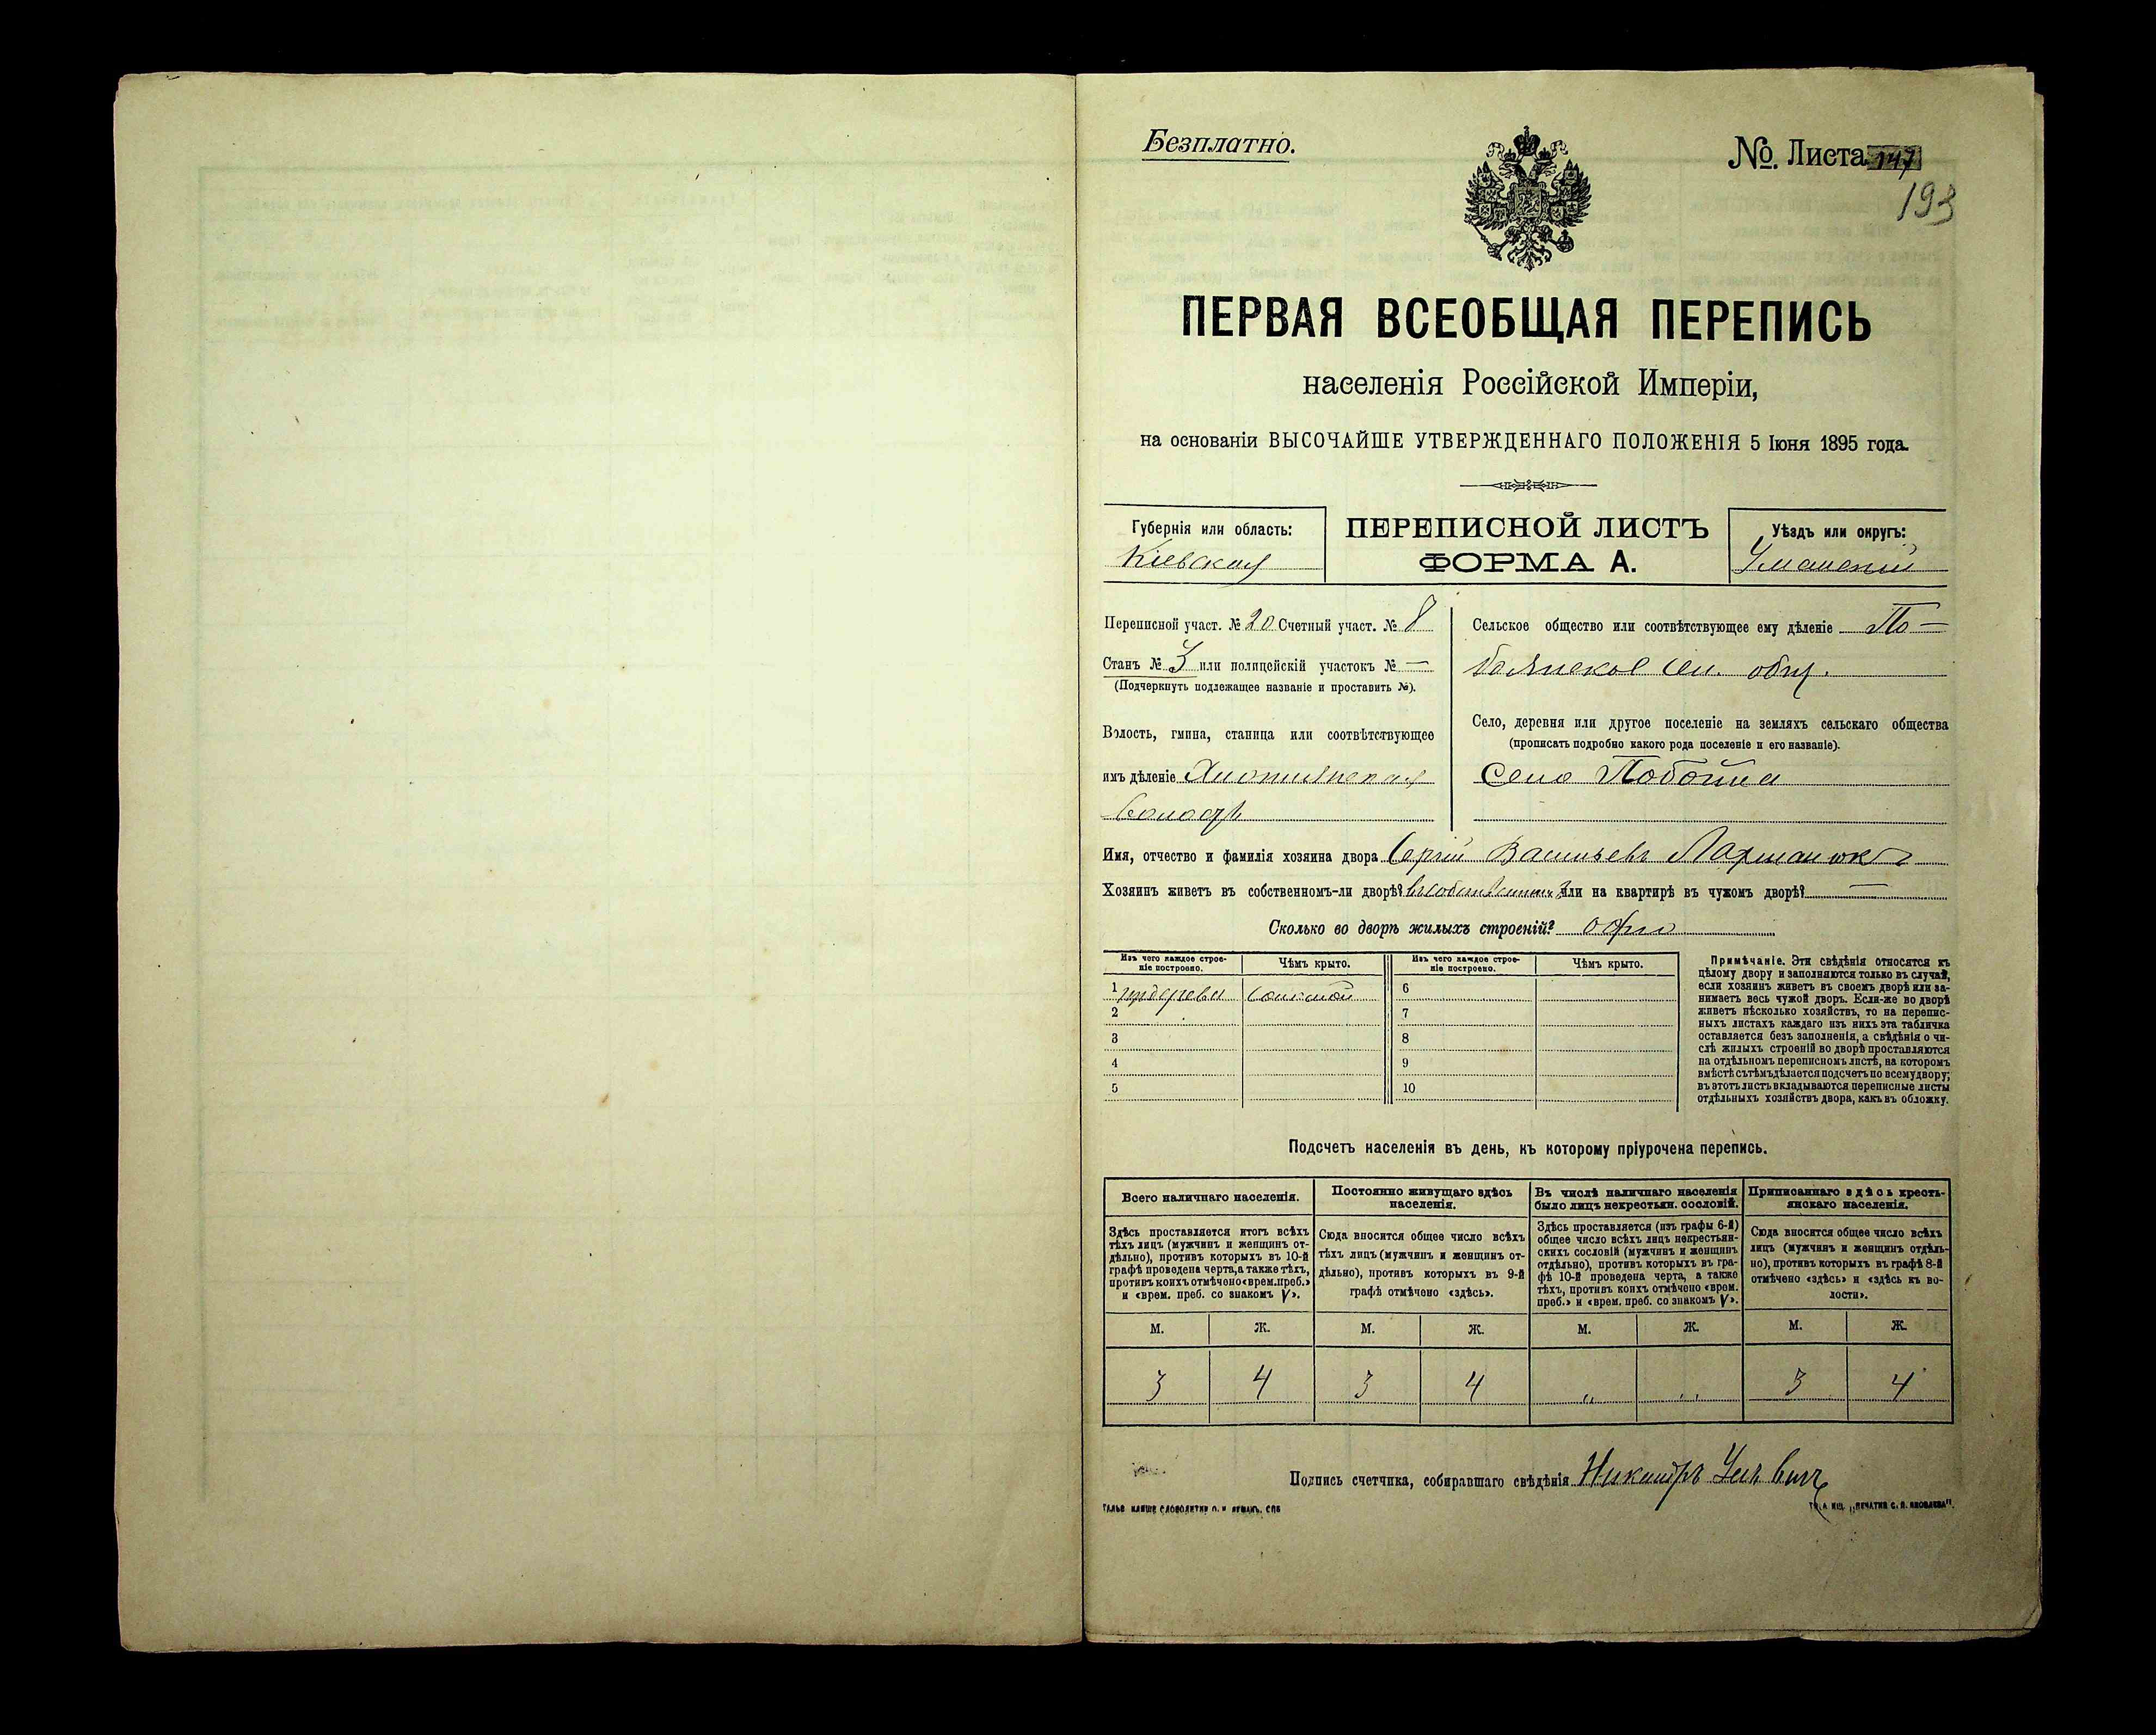 Безплатно.
№. Листа 147
193
ПЕРВАЯ ВСЕОБЩАЯ ПЕРЕПИСЬ
населенія Россійской Имперіи,
на основаніи ВЫСОЧАЙШЕ УТВЕРЖДЕННАГО ПОЛОЖЕНІЯ 5 Іюня 1895 года.
Губернія или область:
Кіевская
ПЕРЕПИСНОЙ ЛИСТЪ
ФОРМА А.
Уѣздъ или округъ:
Уманскій
Переписной участ. № 20 Счетный участ. № 8
Станъ № 3 или полицейскій участокъ № —
(Подчеркнуть подлежащее названіе и проставить №).
Волость, гмина, станица или соотвѣтствующее
имъ дѣленіе
волость
Сельское общество или соотвѣтствующее ему дѣленіе По-
боянское сел. общ.
Село, деревня или другое поселеніе на земляхъ сельскаго общества
(прописать подробно какого рода поселеніе и его названіе).
Село Побойна
Имя, отчество и фамилія хозяина двора Сергій Васильевъ
Хозяинъ живетъ въ собственномъ-ли дворѣ? въ собственномъ или на квартирѣ въ чужомъ дворѣ? —
Сколько во дворѣ жилыхъ строеній? одно
Изъ чего каждое строе-
ніе построено.
Чѣмъ крыто.
Изъ чего каждое строе-
ніе построено.
Чѣмъ крыто.
1 изъ дерева соломой
2
3
4
5
6
7
8
9
10
Примѣчаніе. Эти свѣдѣнія относятся къ
цѣлому двору и заполняются только въ случаѣ,
если хозяинъ живетъ въ своемъ дворѣ или за-
нимаетъ весь чужой дворъ. Если-же во дворѣ
живетъ нѣсколько хозяйствъ, то на перепис-
ныхъ листахъ каждаго изъ нихъ эта табличка
оставляется безъ заполненія, а свѣдѣнія о чи-
слѣ жилыхъ строеній во дворѣ проставляются
на отдѣльномъ переписномъ листѣ, на которомъ
вмѣстѣ съ тѣмъ дѣлается подсчетъ по всему двору;
въ этотъ листъ вкладываются переписные листы
отдѣльныхъ хозяйствъ двора, какъ въ обложку.
Подсчетъ населенія въ день, къ которому пріурочена перепись.
Всего наличнаго населенія.
Здѣсь проставляется итогъ всѣхъ
тѣхъ лицъ (мужчинъ и женщинъ от-
дѣльно), противъ которыхъ въ 10-й
графѣ проведена черта, а также тѣхъ,
противъ коихъ отмѣчено «врем. преб.»
и «врем. преб. со знакомъ V».
Постоянно живущаго здѣсь
населенія.
Сюда вносится общее число всѣхъ
тѣхъ лицъ (мужчинъ и женщинъ от-
дѣльно), противъ которыхъ въ 9-й
графѣ отмѣчено «здѣсь».
Въ числѣ наличнаго населенія
было лицъ некрестьян. сословій.
Здѣсь проставляется (изъ графы 6-й)
общее число всѣхъ лицъ некрестьян-
скихъ сословій (мужчинъ и женщинъ
отдѣльно), противъ которыхъ въ гра-
фѣ 10-й проведена черта, а также
тѣхъ, противъ коихъ отмѣчено «врем.
преб.» и «врем. преб. со знакомъ V».
Приписаннаго здѣсь кресть-
янскаго населенія.
Сюда вносится общее число всѣхъ
лицъ (мужчинъ и женщинъ отдѣль-
но), противъ которыхъ въ графѣ 8-й
отмѣчено «здѣсь» и «здѣсь къ во-
лости».
М. Ж. М. Ж. М. Ж. М. Ж.
3 4 3 4 „ „ 3 4
Подпись счетчика, собиравшаго свѣдѣнія